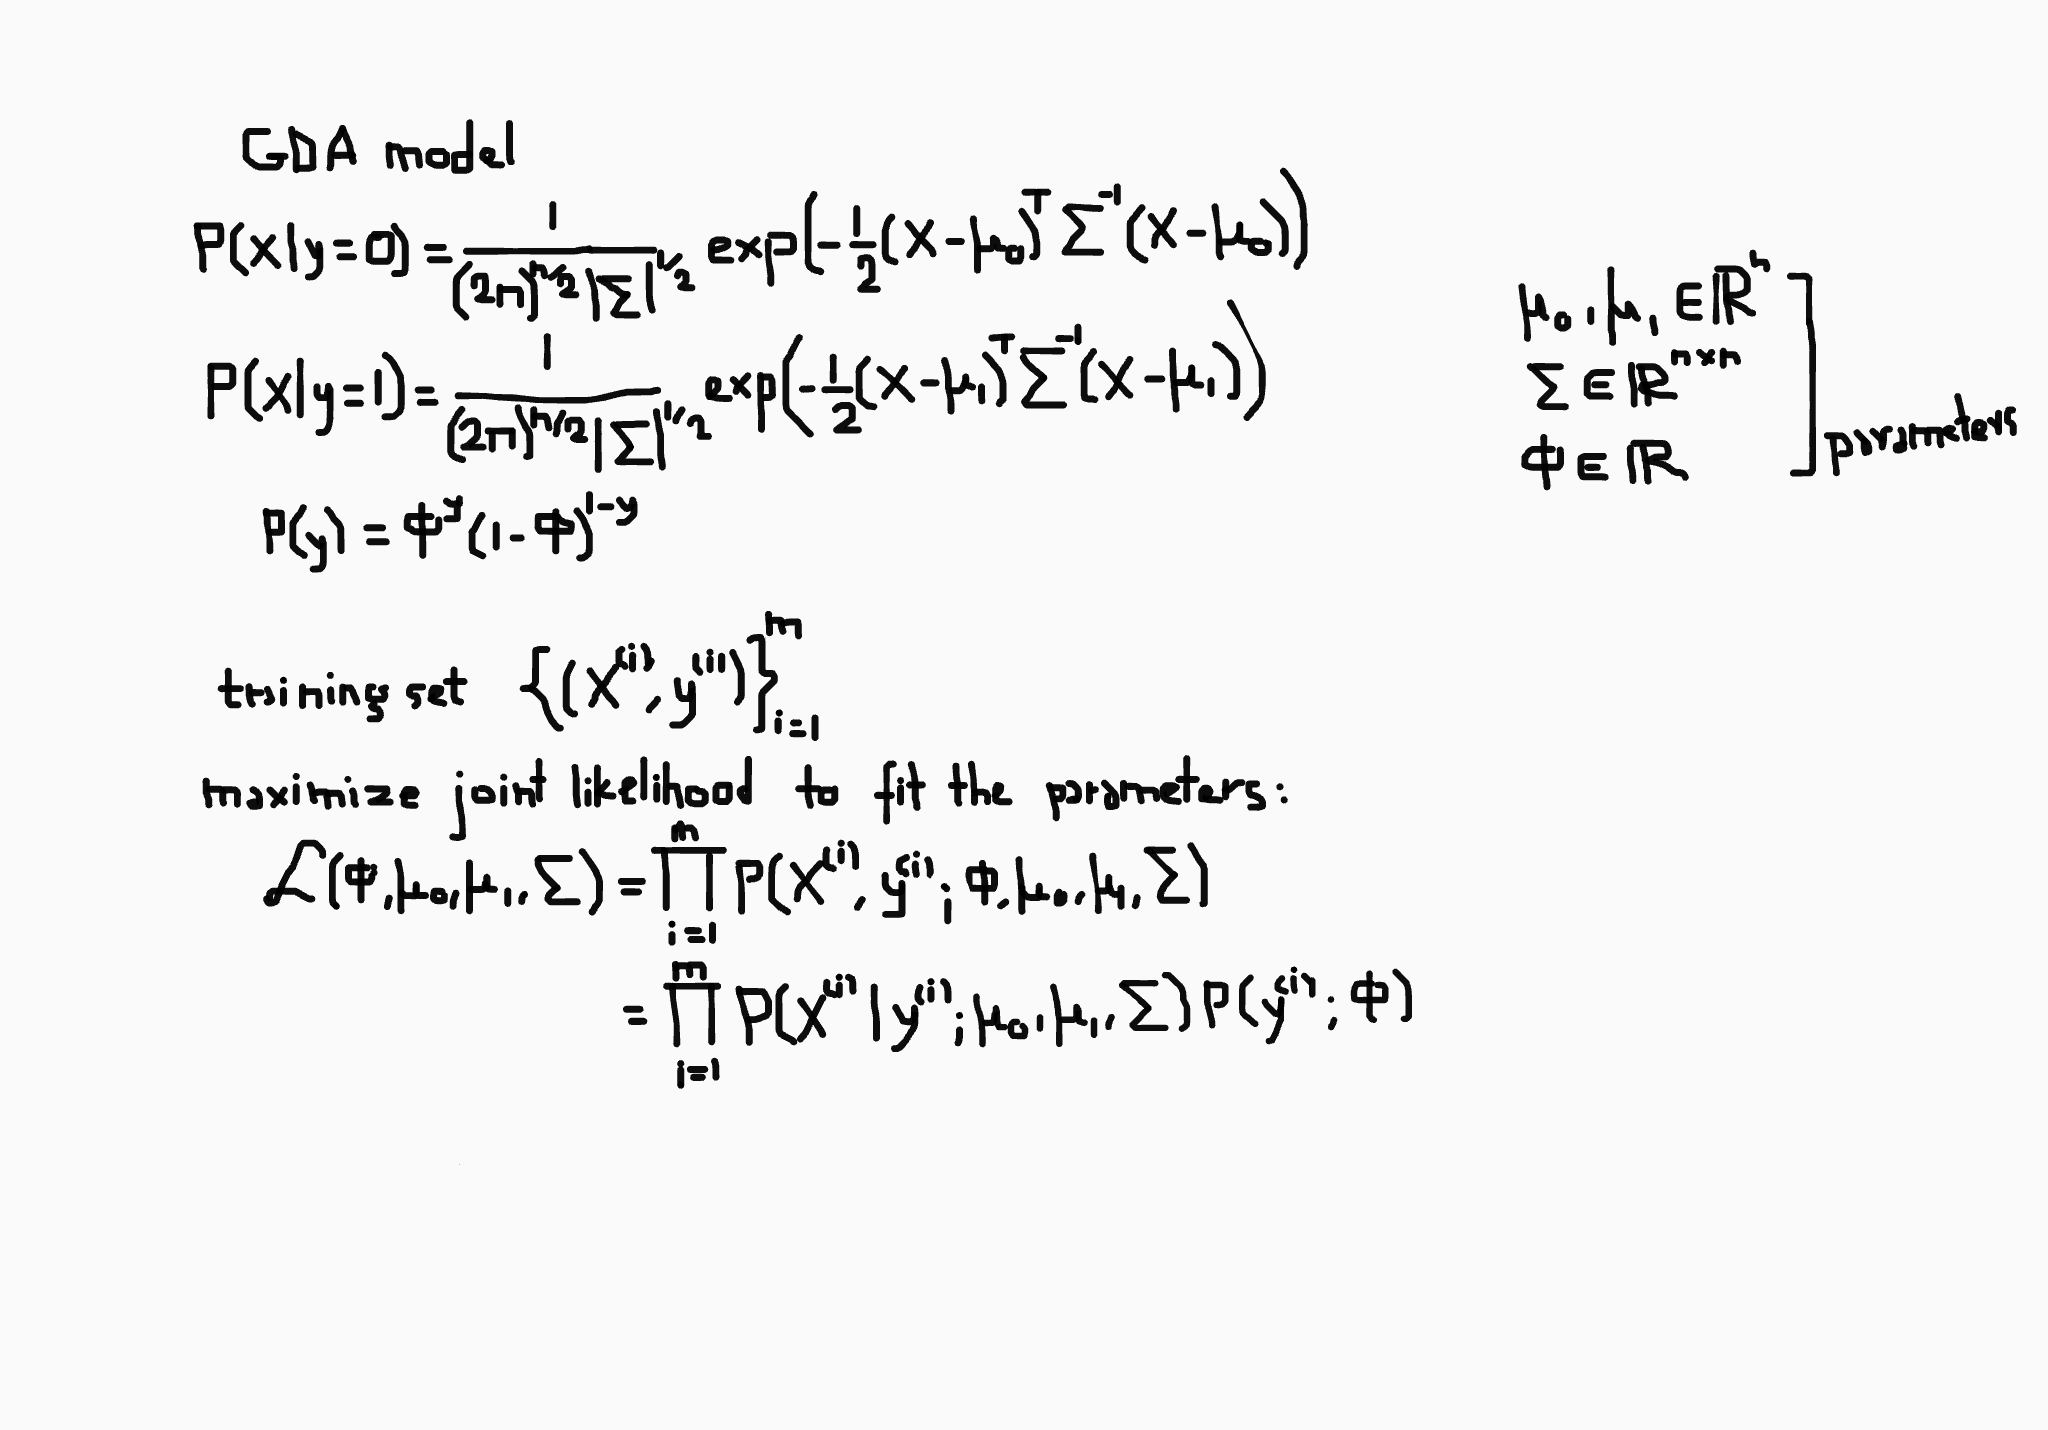 GDA model
P(x|y=0) = 1/((2π)^(n/2) |Σ|^(1/2)) exp(-1/2 (x-μ₀)ᵀ Σ⁻¹ (x-μ₀))
P(x|y=1) = 1/((2π)^(n/2) |Σ|^(1/2)) exp(-1/2 (x-μ₁)ᵀ Σ⁻¹ (x-μ₁))
P(y) = ϕ^y (1-ϕ)^(1-y)
μ₀, μ₁ ∈ ℝⁿ
Σ ∈ ℝ^(n×n)
ϕ ∈ ℝ
parameters
training set {(x⁽ⁱ⁾, y⁽ⁱ⁾)}_{i=1}^m
maximize joint likelihood to fit the parameters:
ℒ(ϕ, μ₀, μ₁, Σ) = ∏_{i=1}^m P(x⁽ⁱ⁾, y⁽ⁱ⁾; ϕ, μ₀, μ₁, Σ)
= ∏_{i=1}^m P(x⁽ⁱ⁾ | y⁽ⁱ⁾; μ₀, μ₁, Σ) P(y⁽ⁱ⁾; ϕ)